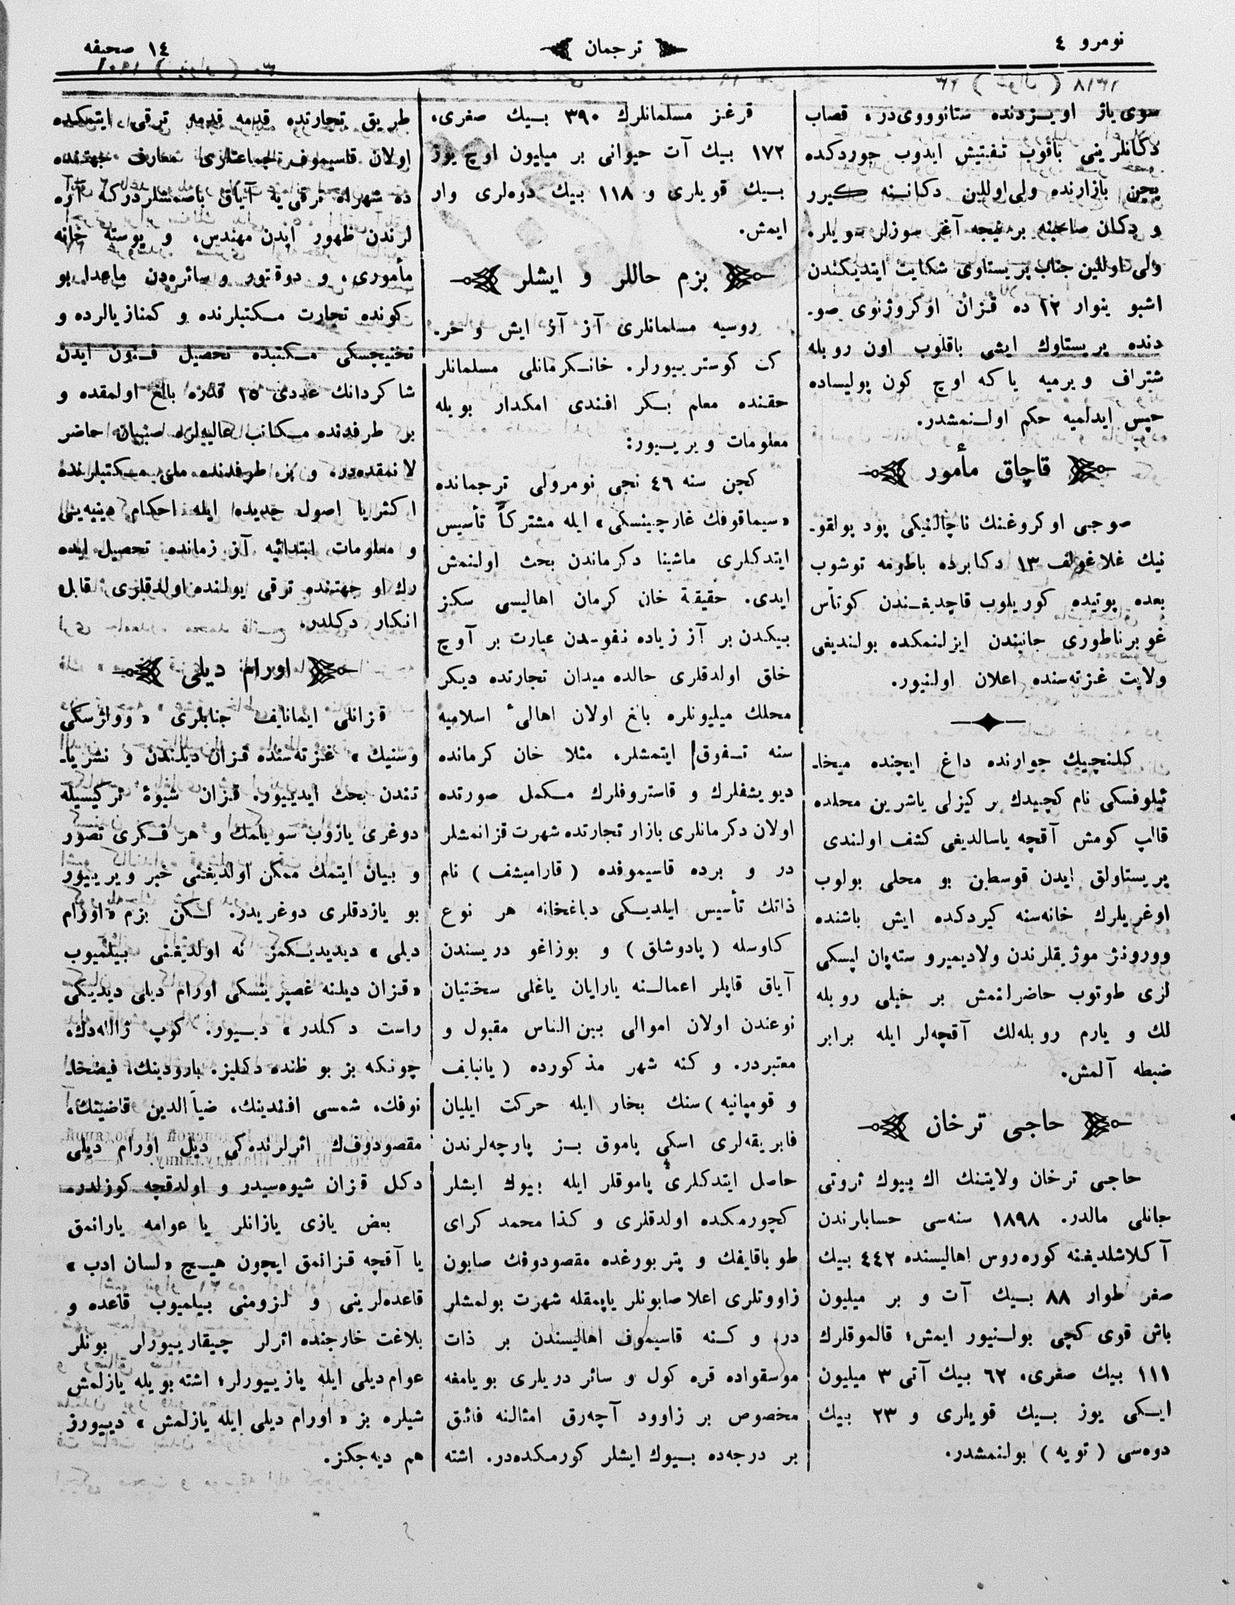 نومرو ٤
ترجمان
١٤ صحيفه
سوی‌یاز اویزدنده ستانوووی‌در، قصاب
دكانلرینی باقوب تفتیش ایدوب جوردكده
بچن بازارنده ولی‌اوللین دكاننه كیرر
و دكان صاحبنه برنیجه آغر سوزلر سویلر.
ولی‌اوللین جناب پریستاوی شكایت ایتدیكندن
اشبو ینوار ١٢ ده قزان اوكروژنوی صو-
دنده پریستاوك ایشی باقلوب اون روبله
شتراف ویرمیه یاكه اوچ كون پولیساده
حبس ایدلمیه حكم اولنمشدر.
قاچاق مأمور
صوجی اوكروغنك ناچالنیكی پود پولقو-
نیك غلاغولف ١٣ دكابرده باطومه توشوب
بعده پوتیده كوریلوب قاچدیغندن كوتأس
غوبرناطوری جانبندن ایزلنمكده بولندیغی
ولایت غزته‌سنده اعلان اولنیور.
كیلنچیك جوارنده داغ ایچنده میخا-
ئیلوفسكی نام كچیدك بر كیزلی یاشرین محلده
قالپ كومش آقچه یاسالدیغی كشف اولندی
پریستاولق ایدن قوسطین بو محلی بولوب
اوغریلرك خانه‌سنه كیردكده ایش باشنده
وورونژ موژیقلرندن ولادیمیرو سته‌پان لپسكی
لری طوتوب حاضرلنمش بر خیلی روبله
لك و یارم روبله‌لك آقچه‌لر ایله برابر
ضبطه آلمش.
حاجی ترخان
حاجی ترخان ولایتنك اك بیوك ثروتی
جانلی مالدر. ١٨٩٨ سنه‌سی حسابارندن
آكلاشلدیغنه كوره روس اهالیسنده ٤٤٢ بیك
صغر طوار ٨٨ بیك آت و بر میلیون
باش قوی كچی بولنیور ایمش؛ قالموقلرك
١١١ بیك صغری، ٦٢ بیك آتی ٣ میلیون
ایكی یوز بیك قویلری و ٢٣ بیك
دوه‌سی ( تویه ) بولنمشدر.
قرغز مسلمانلرك ٣٩٠ بیك صغری،
١٧٢ بیك آت حیوانی بر میلیون اوچ یوز
بیك قویلری و ١١٨ بیك دوه‌لری وار
ایمش.
بزم حاللر و ایشلر
روسیه مسلمانلری آز آز ایش و حر-
كت كوستریورلر. خانكرمانلی مسلمانلر
حقنده معلم بكر افندی امكدار بویله
معلومات ویریور:
كچن سنه ٤٦ نجی نومرولی ترجمانده
«سیماقوفك غارچینسكی» ایله مشتركاً تأسیس
ایتدكلری ماشینا دكرماندن بحث اولنمش
ایدی. حقیقة خان كرمان اهالیسی سكز
بیكدن بر آز زیاده نفوسدن عبارت بر آوچ
خلق اولدقلری حالده میدان تجارتده دیكر
محلك میلیونلره بالغ اولان اهالیٔ اسلامیه
سنه تفوق ایتمشلر، مثلا خان كرمانده
دیویشفلرك و قاستروفلرك مكمل صورتده
اولان دكرمانلری بازار تجارتده شهرت قزانمشلر
در و برده قاسیموفده ( قارامیشف ) نام
ذاتك تأسیس ایلدیكی دباغخانه هر نوع
كاوسله ( پادوشلق ) و بوزاغو دریسندن
آیاق قاپلر اعمالنه یارایان یاغلی سختیان
نوعندن اولان اموالی بین الناس مقبول و
معتبردر. و كنه شهر مذكورده ( یانبایف
و قومپانیه ) سنك بخار ایله حركت ایلیان
فابریقه‌لری اسكی پاموق بز پارچه‌لرندن
حاصل ایتدكلری پاموقلر ایله بیوك ایشلر
كچورمكده اولدقلری و كذا محمد كرای
طوباقایفك و پتربورغده مقصودوفك صابون
زاووتلری اعلا صابونلر یاپمقله شهرت بولمشلر
در؛ و كنه قاسیموف اهالیسندن بر ذات
موسقواده قره كول و سائر دریلری بویامغه
مخصوص بر زاوود آچه‌رق امثالنه فائق
بر درجه‌ده بیوك ایشلر كورمكده‌در. اشته
طریق تجارتده قدمه قدمه ترقی ایتمكده
اولان قاسیموف جماعتلری معارف جهتنده
ده شهراه ترقی‌یه آیاق باصمشلردركه آره
لرندن ظهور ایدن مهندس، و پوسته خانه
مأموری، و دوقتور و سائره‌دن ماعدا بو
كونده تجارت مكتبلرنده و كمنازیالرده و
تخنیچسكی مكتبده تحصیل فنون ایدن
شاكردانك عددی ٢٥ قدره بالغ اولمقده و
بر طرفدنده مكاتب عالیه‌لره صبیان حاضر
لانمقده‌در. و بر طرفدنده ملی مكتبلرنده
اكثریا اصول جدیده ایله احكام دینیه‌یی
و معلومات ابتدائیه آز زمانده تحصیل ایده
رك او جهتنده ترقی یولنده اولدقلری قابل
انكار دكلدر.
اورام دیلی
قزانلی ایمانایف جنابلری «وولژسكی
وستنیك» غزته‌سنده قزان دیلندن و نشریا-
تندن بحث ایدییور. قزان شیوۀ تركیسیله
دوغری یازوب سویلمك و هر فكری تصور
و بیان ایتمك ممكن اولدیغنی خبر ویرییور
بو یازدقلری دوغریدر. لكن بزم «اورام
دیلی» دیدیدیكمز نه اولدیغنی بیلمیوب
«قزان دیلنه غصپرینسكی اورام دیلی دیدیكی
راست دكلدر» دییور. كوپ ژاله‌دك،
چونكه بز بو ظنده دكلیز. بارودینك، فیضخا-
نوفك، شمسی افندینك، ضیأالدین قاضینك،
مقصودوف‌ك اثرلرنده‌كی دیل اورام دیلی
دكل قزان شیوه‌سیدر و اولدقچه كوزلدر.
بعض یازی یازانلر یا عوامه یارانمق
یا آقچه قزانمق ایچون هیچ «لسان ادب»
قاعده‌لرینی و لزومنی بیلمیوب قاعده و
بلاغت خارجنده اثرلر چیقارییورلر بونلر
عوام دیلی ایله یازییورلر؛ اشته بویله یازلمش
شیلره بز «اورام دیلی ایله یازلمش» دییورز
هم دیه‌جكز.